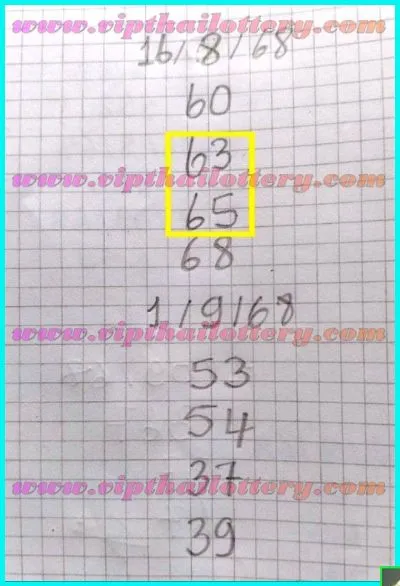 www.vipthailottery.com
16/8/68
60
63
www.vipthailottery.com
65
68
1/9/68
www.vipthailottery.com
53
54
37
www.vipthailottery.com
39